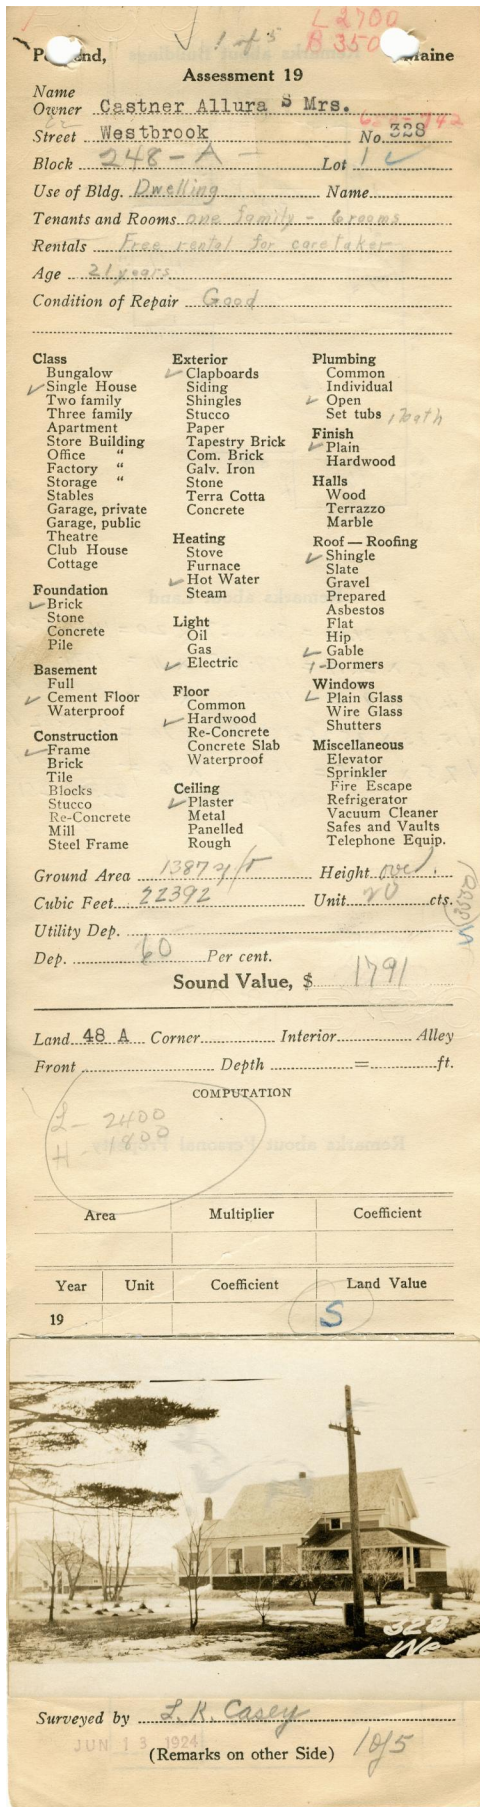 1 of 5
L 2700
B 350
Maine
Assessment 19
Name
Owner Castner Allura S Mrs.
Street Westbrook No. 328
Block 248-A- Lot 1
Use of Bldg. Dwelling Name
Tenants and Rooms one family - 6 rooms
Rentals Free rental for caretaker
Age 21 years
Condition of Repair Good
Class
Bungalow
✓ Single House
Two family
Three family
Apartment
Store Building
Office "
Factory "
Storage "
Stables
Garage, private
Garage, public
Theatre
Club House
Cottage
Foundation
✓ Brick
Stone
Concrete
Pile
Basement
Full
✓ Cement Floor
Waterproof
Construction
✓ Frame
Brick
Tile
Blocks
Stucco
Re-Concrete
Mill
Steel Frame
Exterior
✓ Clapboards
Siding
Shingles
Stucco
Paper
Tapestry Brick
Com. Brick
Galv. Iron
Stone
Terra Cotta
Concrete
Heating
Stove
Furnace
✓ Hot Water
Steam
Light
Oil
Gas
✓ Electric
Floor
Common
✓ Hardwood
Re-Concrete
Concrete Slab
Waterproof
Ceiling
✓ Plaster
Metal
Panelled
Rough
Plumbing
Common
Individual
✓ Open
Set tubs 1 Bath
Finish
✓ Plain
Hardwood
Halls
Wood
Terrazzo
Marble
Roof — Roofing
✓ Shingle
Slate
Gravel
Prepared
Asbestos
Flat
Hip
✓ Gable
1- Dormers
Windows
✓ Plain Glass
Wire Glass
Shutters
Miscellaneous
Elevator
Sprinkler
Fire Escape
Refrigerator
Vacuum Cleaner
Safes and Vaults
Telephone Equip.
Ground Area 1387 Height
Cubic Feet 22392 Unit 20 cts.
Utility Dep.
Dep. 60 Per cent.
Sound Value, $ 1791
Land 48 A Corner Interior Alley
Front Depth = ft.
COMPUTATION
L - 2400
H - 1800
Area Multiplier Coefficient
Year Unit Coefficient Land Value
19 S
328
We
Surveyed by L. R. Casey
JUN 13 1924
(Remarks on other Side) 1 of 5